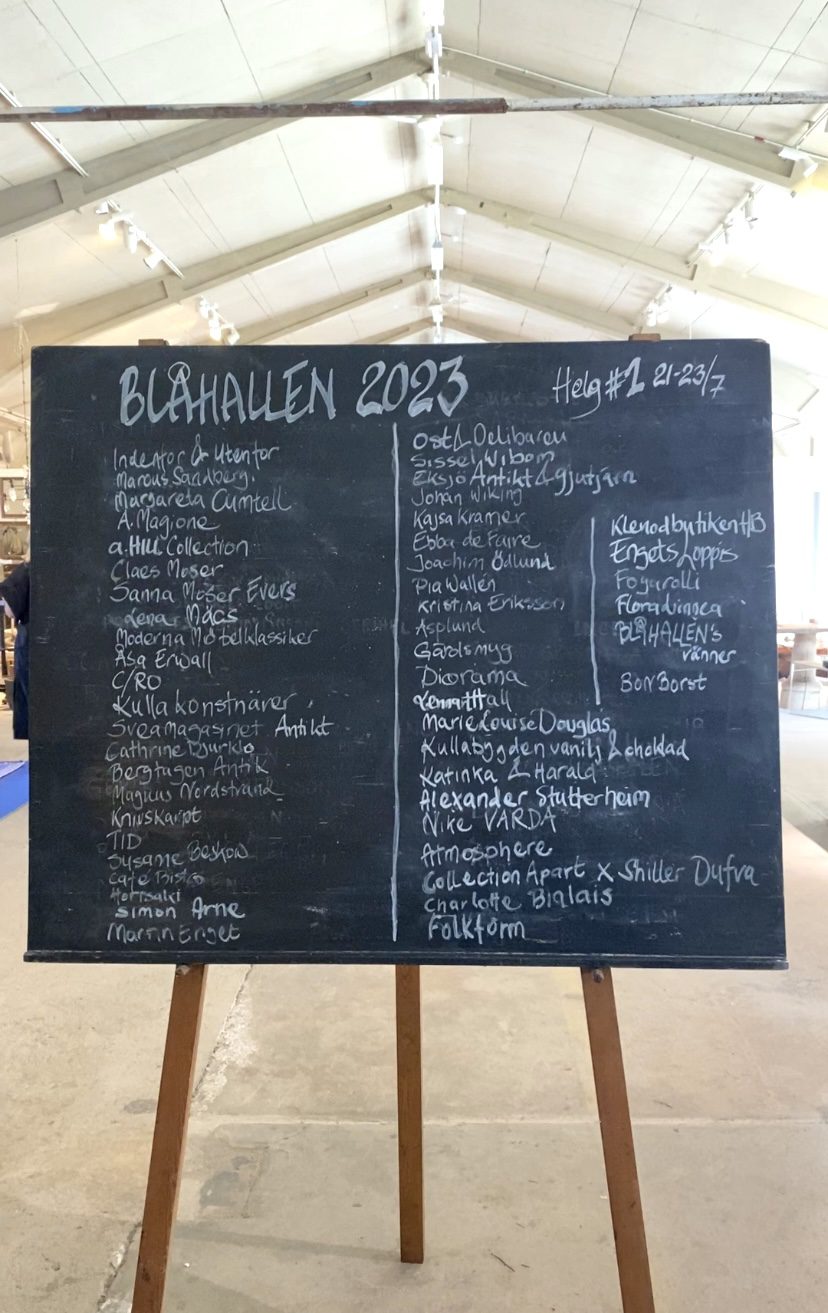 BLÅHALLEN 2023
Helg #1 21-23/7
Indentor & Utentor
Marcus Sandberg.
Margareta Cumtell
A. Magione
a.Hill Collection
Claes Moser
Sanna Moser Evers
Lena Macs
Moderna Möbelklassiker
Åsa Erwall
C/RO
Kulla konstnärer
Svea magasinet Antikt
Cathrine Djurklo
Bergtagen Antik
Magnus Nordstrand
Knivskarpt
TID
Susanne Beskow
Café Bistro
Simon Arne
Martin Enget
Ost & Delibaren
Sissel Wibom
Eksjö Antikt & gjutjärn
Johan Wiking
Kajsa Kramer
Ebba de Faire
Joachim Ödlund
Pia Wallén
Kristina Eriksson
Asplund
Gårdsmyg
Diorama
Lennart Hall
Marie Louise Douglas
Kullabygden vanilj & choklad
Katinka & Harald
Alexander Stutterheim
Nike VARDA
Atmosphere
Collection Apart X Shiller Dufva
Charlotte Bialais
Folkform
Klenodbutiken HB
Engets Loppis
Fogarolli
Floradinoca
BLÅHALLENS
vänner
Bon Borst